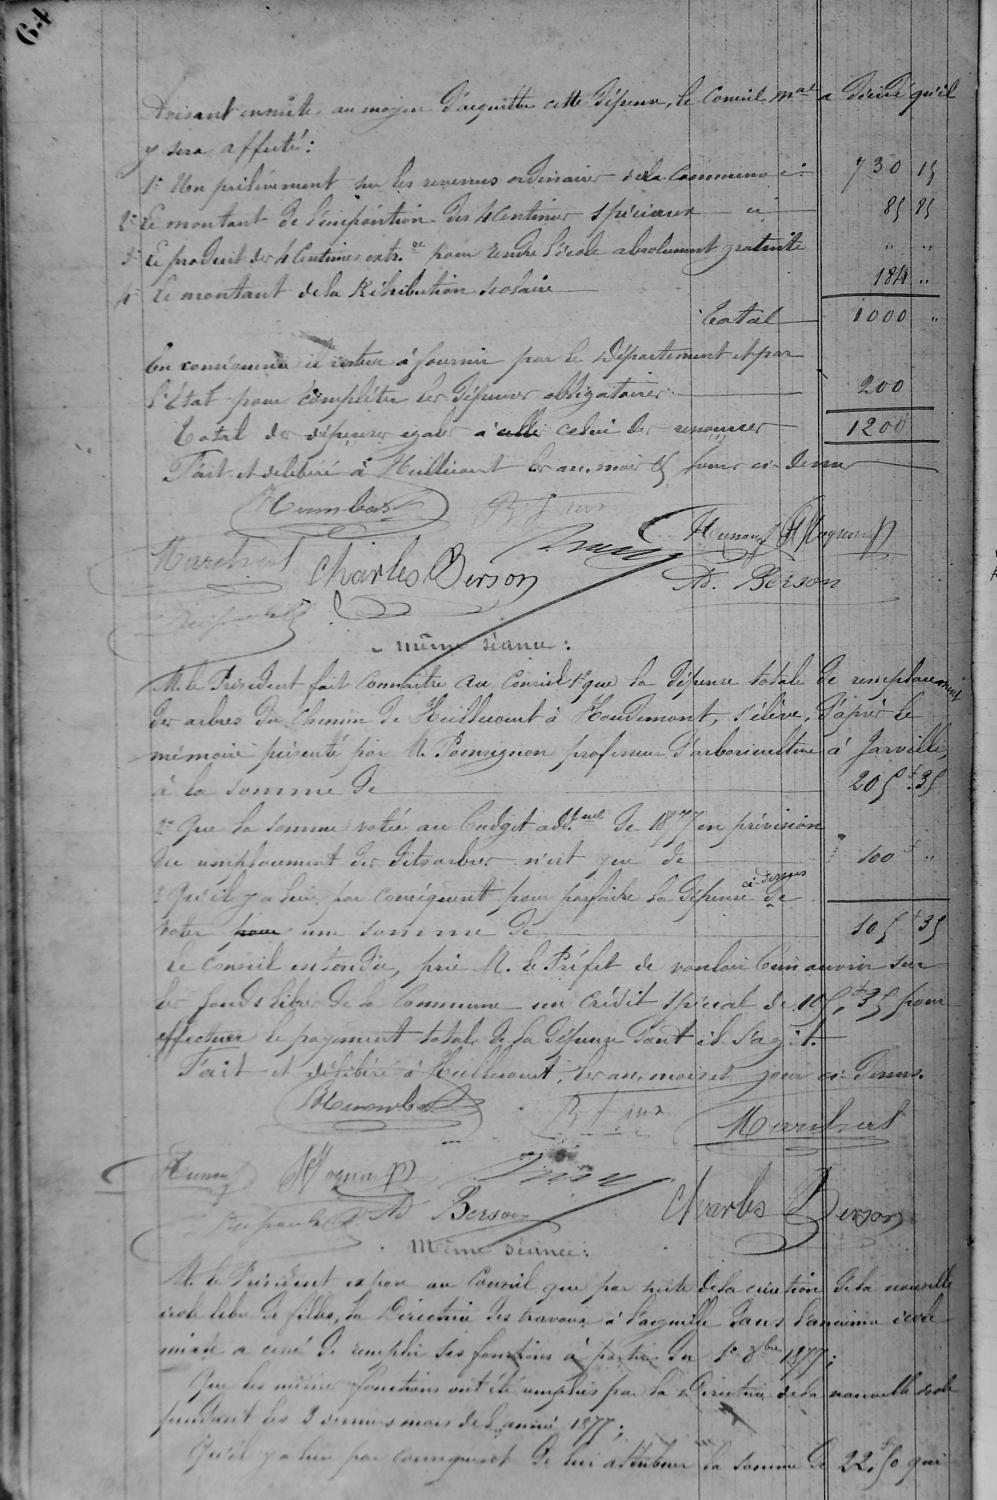 64
Avisant ensuite au moyen d'acquitter cette dépense, le Conseil mal a décidé qu'il
y sera affecté :
1° Un prélèvement sur les revenus ordinaires de la Commune ci 730 15
2° Le montant de l'imposition des 4 Centimes spéciaux ci 85 85
3° Le produit des 4 Centimes extr.re pour rendre l'école absolument gratuite " "
4° Le montant de la Rétribution scolaire 184 "
Total 1000 "
En conséquence il restera à fournir par le Département et par
l'Etat pour compléter les dépenses obligatoires 200
Total des dépenses égales à celle celui des ressources 1200
Fait et délibéré à Heillecourt les an, mois & jours ci-dessus
Marchal Charles Berson Ad. Berson
même séance :
M. le Président fait connaitre au Conseil 1° que la dépense totale de remplacement
des arbres du Chemin de Heillecourt à Houdemont, s'élève, d'après le
mémoire présenté par M. Poinsignon professeur d'arboriculture à Jarville,
à la somme de 205f.35
2° Que la somme votée au budget add.nel de 1877 en prévision
du remplacement des dits arbres n'est que de 100f "
3° Qu'il y a lieu par conséquent pour parfaire la dépense ci-dessus de
voter pour une somme de 105f35
Le Conseil entendu, prie M. le Préfet de vouloir bien ouvrir sur
les fonds libres de la Commune un crédit spécial de 105f,35 pour
effectuer le payement total de la dépense dont il s'agit.
Fait et délibéré à Heillecourt, les an, mois et jour ci-dessus.
Marchal
Ad Berson Charles Berson
Même séance :
M. le Président expose au Conseil que par suite de la création de la nouvelle
école libre de filles, la Directrice des travaux à l'aiguille dans l'ancienne école
mixte a cessé de remplir ses fonctions à partir du 1er 8bre 1877 ;
Que les mêmes fonctions ont été remplies par la Directrice de la nouvelle école
pendant les 3 derniers mois de l'année 1877 ;
Qu'il y a lieu par conséquent de lui attribuer la somme de 22f,50 qui